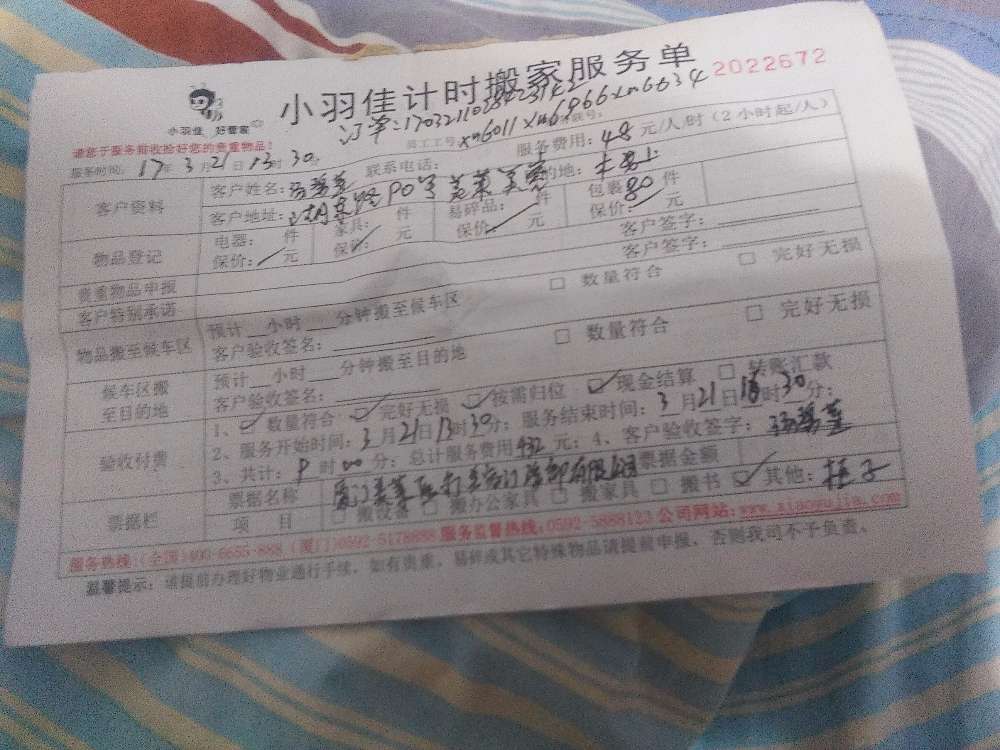 小羽佳计时搬家服务单
2022672
小羽佳 好管家
订单:
xm6011 xm6966 xm6634
请您于服务前收验好您的贵重物品!
员工工号
服务时间: 17年 3月 21日 13时 30分 联系电话: 服务费用: 48 元/人/时(2小时起/人)
客户资料
客户姓名: 目的地:
客户地址:
物品登记
电器: 件 家具: 件 易碎品: 件 包裹 80 件
保价: 元 保价: 元 保价: 元 保价: 元
贵重物品申报 客户签字:
客户特别承诺 客户签字:
物品搬至候车区
预计 小时 分钟搬至候车区 □ 数量符合 □ 完好无损
客户验收签名:
候车区搬至目的地
预计 小时 分钟搬至目的地 □ 数量符合 □ 完好无损
客户验收签名:
验收付费
1、☑ 数量符合 ☑ 完好无损 ☑ 按需归位 ☑ 现金结算 □ 转账汇款
2、服务开始时间: 3月 21日 13时 30分; 服务结束时间: 3月 21日 时 30分;
3、共计: 时 00 分; 总计服务费用 432 元; 4、客户验收签字:
票据栏
票据名称 票据金额
项 目 □ 搬设备 □ 搬办公家具 □ 搬家具 □ 搬书 ☑ 其他:
服务热线:(全国)400-6655-888 (厦门)0592-5178888 服务监督热线:0592-5888123 公司网站:www.xiaoyujia.com
温馨提示: 请提前办理好物业通行手续, 如有贵重、易碎或其它特殊物品请提前申报, 否则我司不予负责。